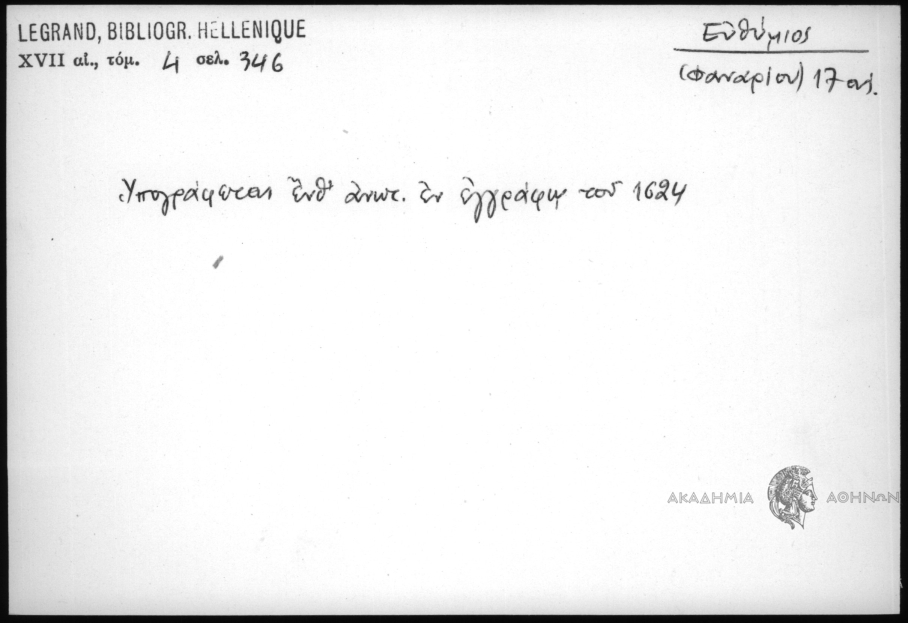 LEGRAND, BIBLIOGR. HELLENIQUE
XVII αἰ., τόμ. 4 σελ. 346
Εὐθύμιος
(Φαναρίου) 17 αἰ.
Ὑπογράφεται ἔνθ' ἀνωτ. ἐν ἐγγράφῳ τοῦ 1624
ΑΚΑΔΗΜΙΑ ΑΘΗΝΩΝ